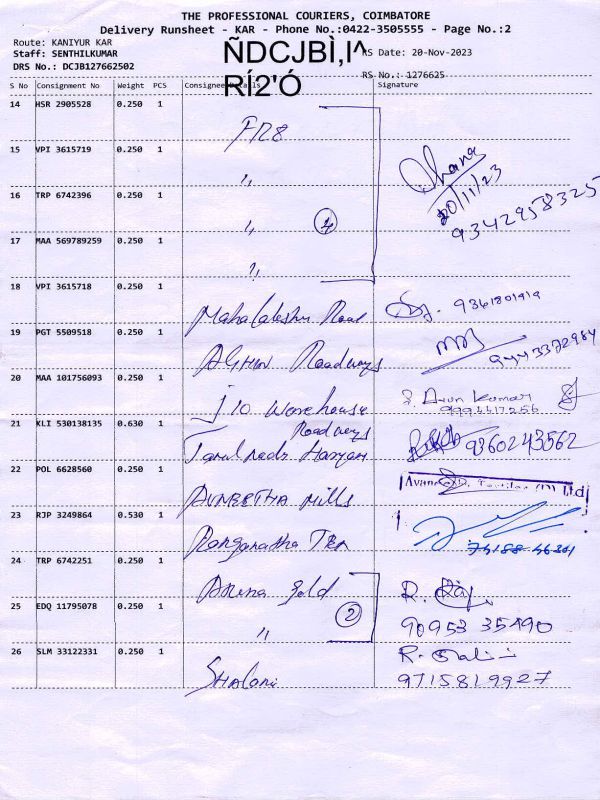 THE PROFESSIONAL COURIERS, COIMBATORE
Delivery Runsheet - KAR - Phone No.:0422-3505555 - Page No.:2
Route: KANIYUR KAR
Staff: SENTHILKUMAR
RS Date: 20-Nov-2023
DRS No.: DCJB127662502
ÑDCJBÌ,I^
RÍ2'Ó
RS No.: 1276625
S No Consignment No Weight PCS Consignee Details Signature
14 HSR 2905528 0.250 1
FR8
15 VPI 3615719 0.250 1
"
20/11/23
16 TRP 6742396 0.250 1
" 4
9342958325
17 MAA 569789259 0.250 1
"
18 VPI 3615718 0.250 1
9361801919
19 PGT 5509518 0.250 1
Roadways
9443372984
20 MAA 101756093 0.250 1
J10 Warehouse
S. Arun Kumar
9994417256
21 KLI 530138135 0.630 1
Roadways
Tamilnadu Haryana
9360243562
22 POL 6628560 0.250 1
AVNEETHA Mills
23 RJP 3249864 0.530 1
Ranganatha Tex
74188 46301
24 TRP 6742251 0.250 1
Aruna Gold
R.
25 EDQ 11795078 0.250 1
" 2
90953 35490
26 SLM 33122331 0.250 1
Shalani
R. Shalini
9715819927